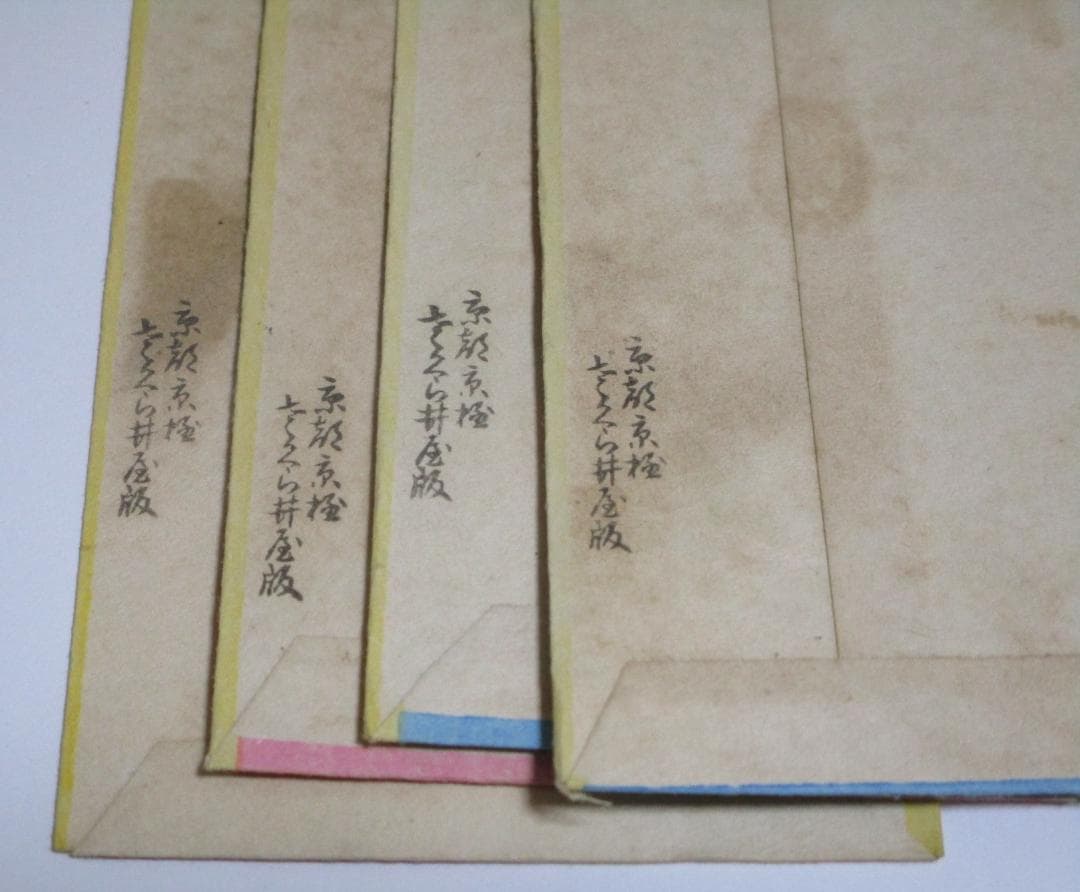 京都京極
さくら井屋版
京都京極
さくら井屋版
京都京極
さくら井屋版
京都京極
さくら井屋版